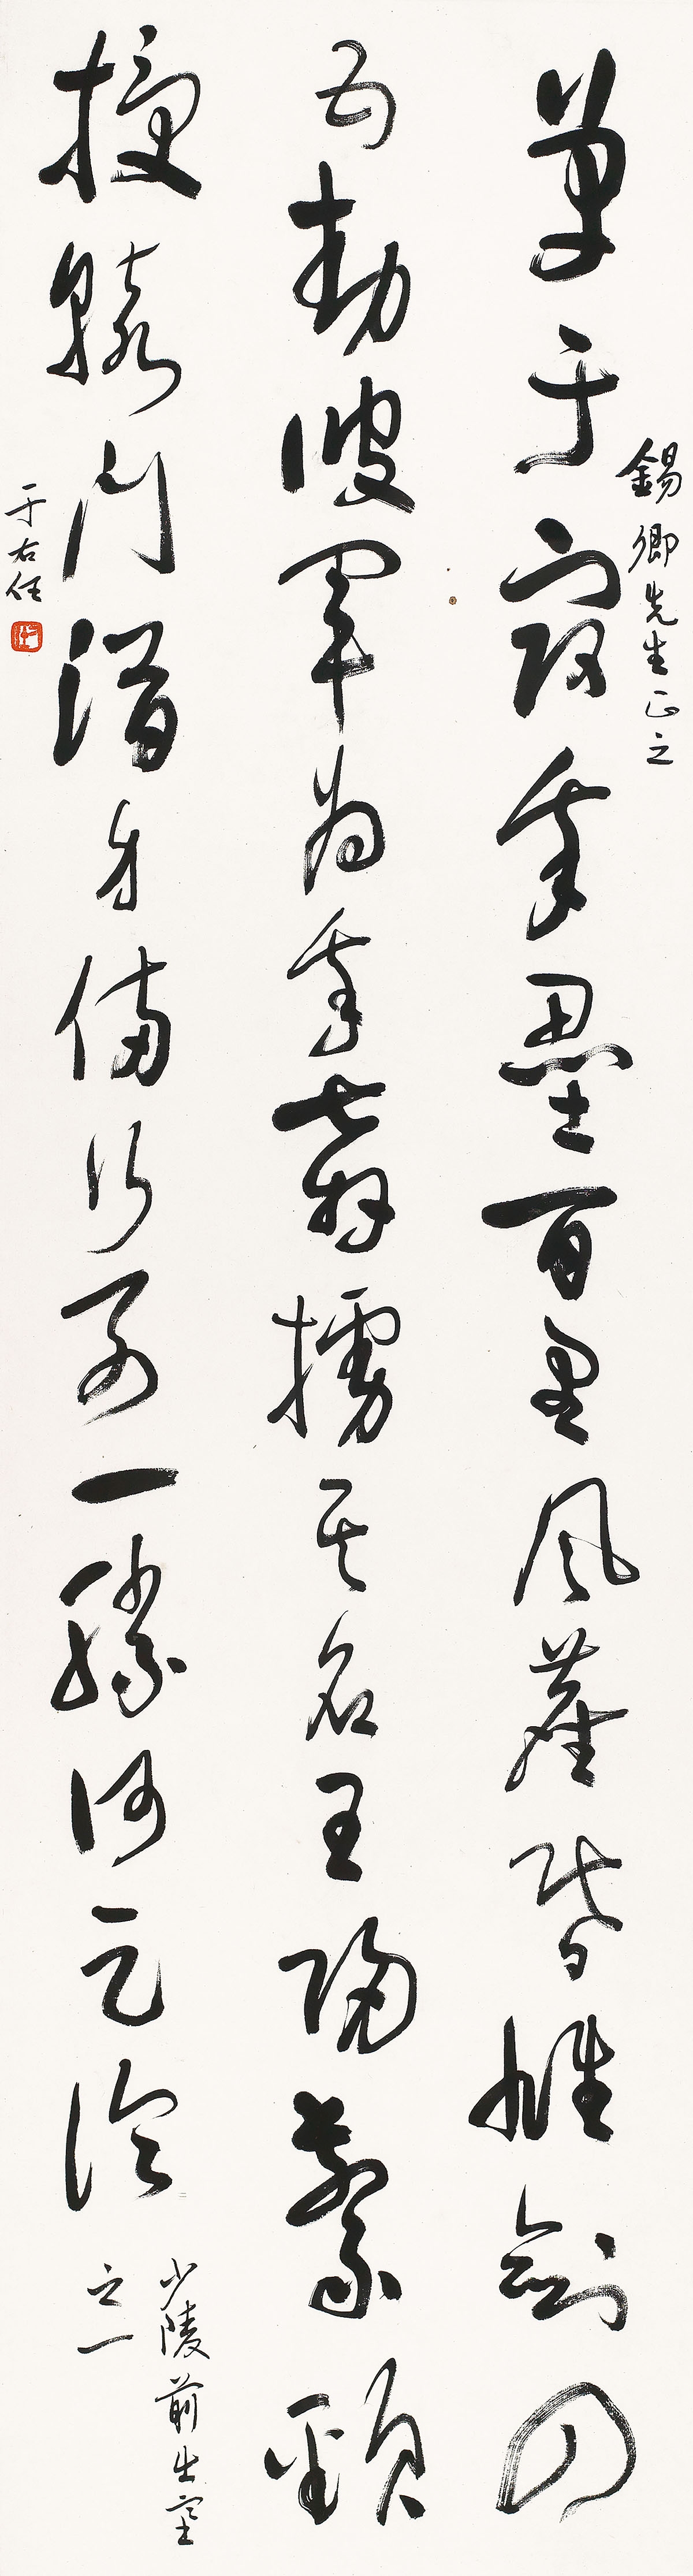 錫卿先生正之
單于寇我壘百里風塵昏雄劍四
五動彼軍為我奔擄其名王歸繫頸
授轅門潛身備行列一勝何足論
少陵前出塞
之一
于右任